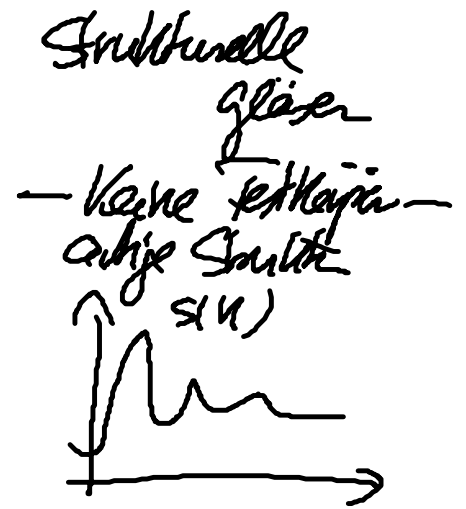 Strukturelle
gläser
— Keine Festkörper—
artige Struktur
S(k)